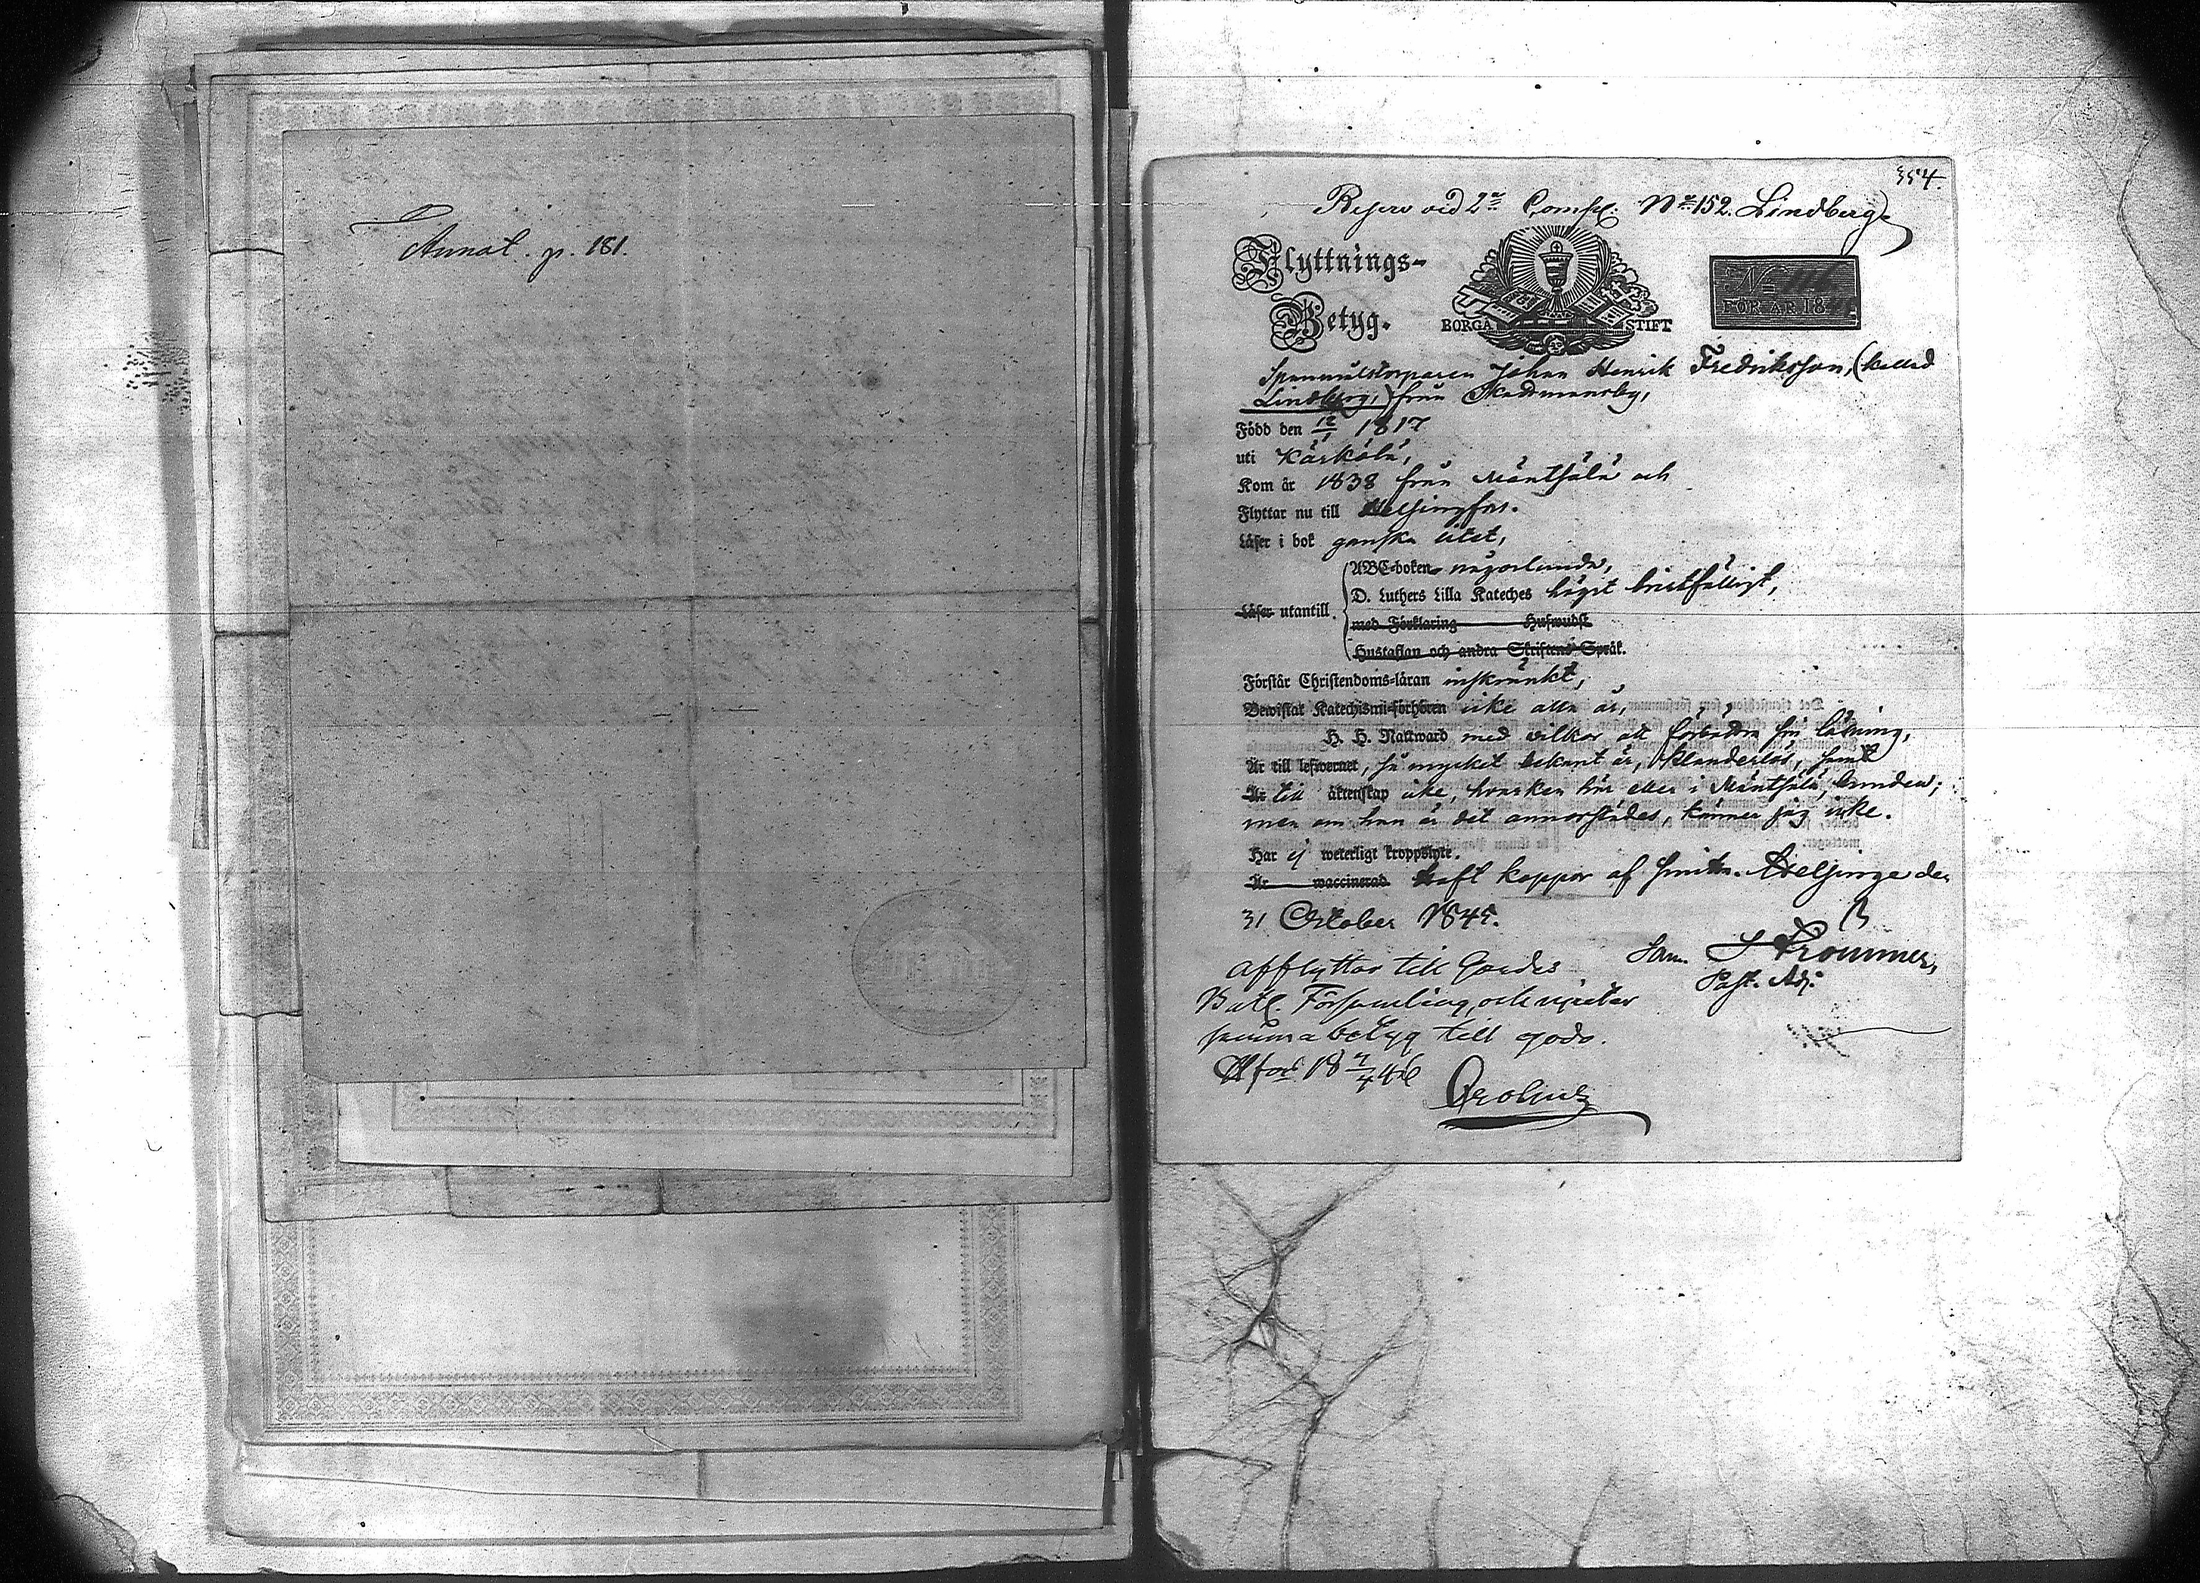 Annot. p. 181.
354.
Reserv vid 2:a Comp: No 152. Lindberg
Flyttnings-
Betyg.
BORGÅ STIFT
No
FÖR ÅR 18
Johan Henrik Fredriksson, (kallad
Lindberg,) från Skattmansby,
Född den 12/1 1817
uti Kärkölä,
Kom år 1838 från Mäntsälä och
Flyttar nu till Helsingfors.
Läser i bok ganska litet,
ABC-boken någorlunda,
D. Luthers Lilla Kateches högst bristfälligt,
Läser utantill
med Förklaring Huswudst.
Hustaflan och andra Skriftens Språk.
Förstår Christendoms-läran inskränkt,
Bewistat Katechismi-förhören icke alla år,
H. H. Nattward med vilkor att förbättra sin läsning,
Är till lefwernet, så mycket bekant är, klanderlös, samt
Är till äktenskap icke, hvarken här eller i Mäntsälä, bunden;
men om han är det annorstädes, känner jag icke.
Har ej weterligt kroppslyte.
Är waccinerad haft koppor af smitta. Helsinge den
31 October 1845.
Sam. S. Krommer,
Past. Adj.
Afflyttar till Gardes
Batl. Församling, och njuter
samma betyg till godo.
Hfors 18 7/4 46